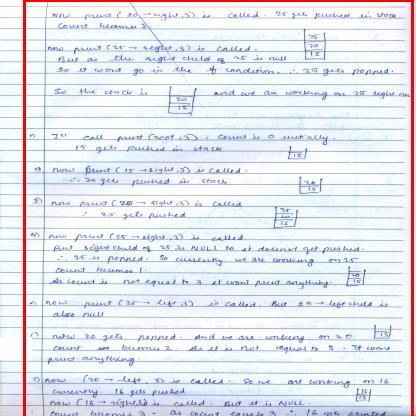 Now print (20 → right, 3) is called. 25 gets pushed in stack
Count becomes 3.
25
20
15
now print (25 → right, 3) is called.
But as the right child of 25 is null
so it wont go in the if condition. ∴ 25 gets popped.
So the stack is
20
15
and we are working on 25 right now
1) Ist call print (root, 3). Count is 0 initially.
15 gets pushed in stack
15
2) now print (15 → right, 3) is called.
∴ 20 gets pushed in stack
20
15
3) now print (20 → right, 3) is called
∴ 25 gets pushed
25
20
15
4) now print (25 → right, 3) is called
But right child of 25 is NULL so it doesnot get pushed.
∴ 25 is popped. So currently we are working on 25
count becomes 1.
As count is not equal to 3 it wont print anything.
20
15
now print (25 → left, 3) is called. But 25 → left child is
also null
now 20 gets popped. And we are working on 20.
15
count becomes 2. As it is not equal to 3. It wont
print anything.
7) now (20 → left, 3) is called. So we are working on 16
currently. 16 gets pushed
16
15
now (16 → right, 3) is called. But it is NULL.
count becomes 3. As count equals 3. ∴ 16 gets printed